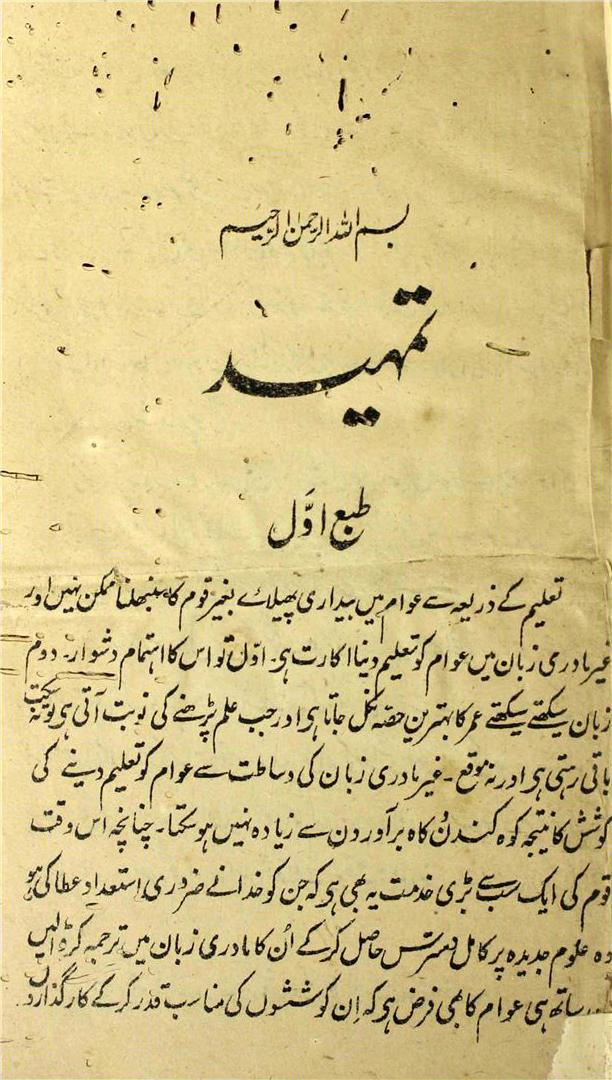 بسم اللہ الرحمن الرحیم
تمہید
طبع اوّل
تعلیم کے ذریعہ سے عوام میں بیداری پھیلائے بغیر قوم کا سنبھلنا ممکن نہیں اور
غیر مادری زبان میں عوام کو تعلیم دینا اکارت ہی۔ اوّل تو اس کا اہتمام دشوار۔ دوم
زبان سیکھتے سیکھتے عمر کا بہترین حصّہ نکل جاتا ہی اور جب علم پڑھنے کی نوبت آتی ہی تو نہ سکت
باقی رہتی ہی اور نہ موقع۔ غیر مادری زبان کی وساطت سے عوام کو تعلیم دینے کی
کوشش کا نتیجہ کوہ کندن کاہ برآوردن سے زیادہ نہیں ہو سکتا۔ چنانچہ اس وقت
قوم کی ایک سب سے بڑی خدمت یہ بھی ہی کہ جن کو خدا نے ضروری استعداد عطا کی ہو
وہ علوم جدیدہ پر کامل دسترس حاصل کر کے اُن کا مادری زبان میں ترجمہ کر ڈالیں
ساتھ ہی عوام کا بھی فرض ہی کہ اِن کوششوں کی مناسب قدر کر کے